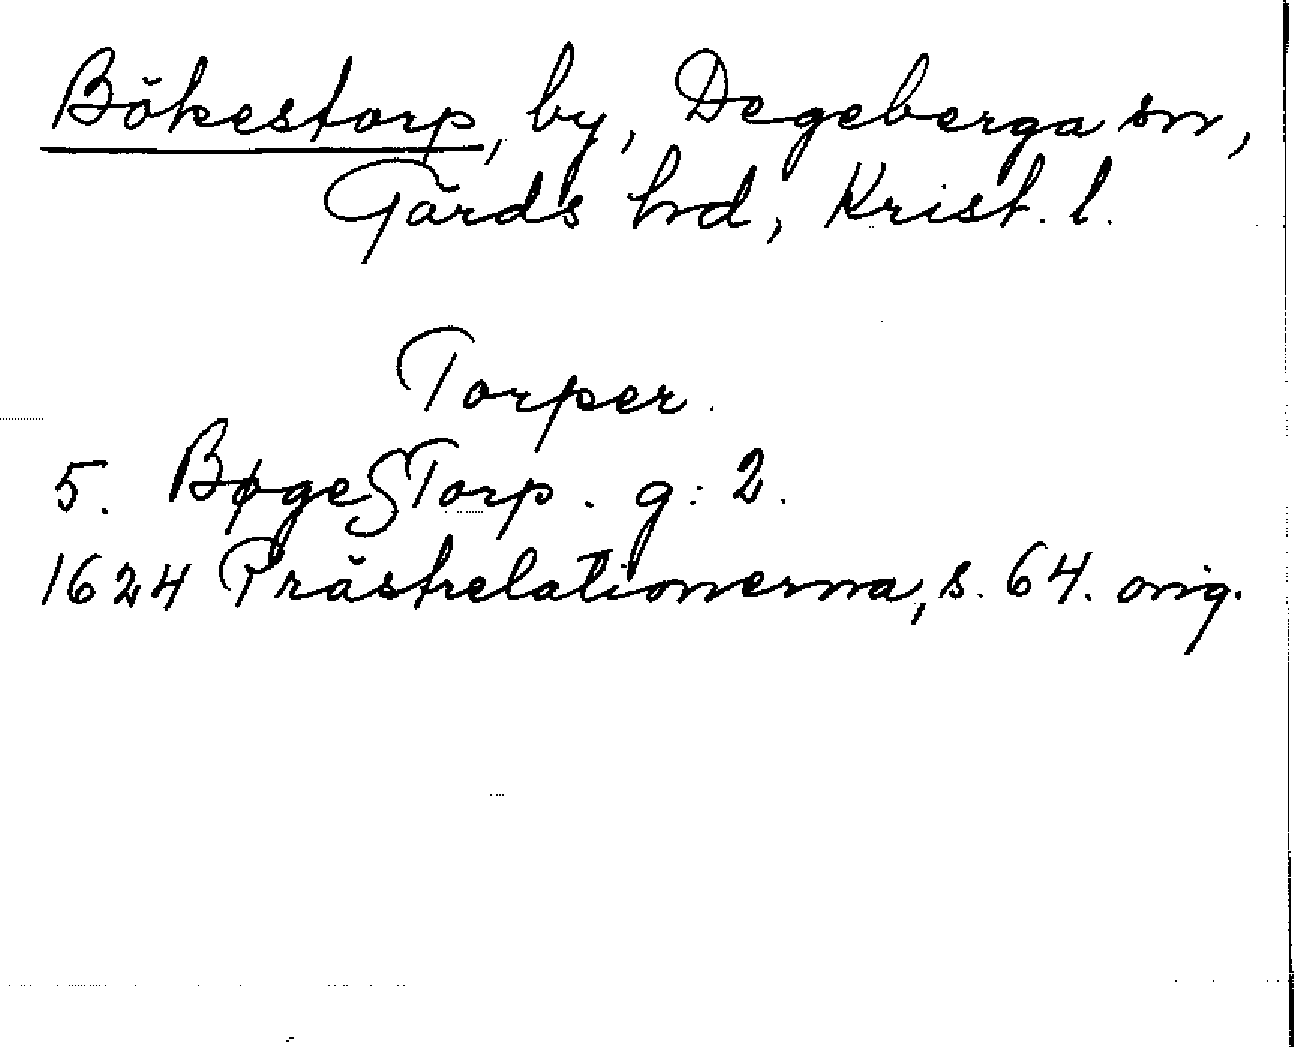 Bökestorp, by, Degeberga sn,
Gärds hd, Krist. l.
Torper.
5. BøgeSTorp. g: 2.
1624 Prästrelationerna, s. 64. orig.